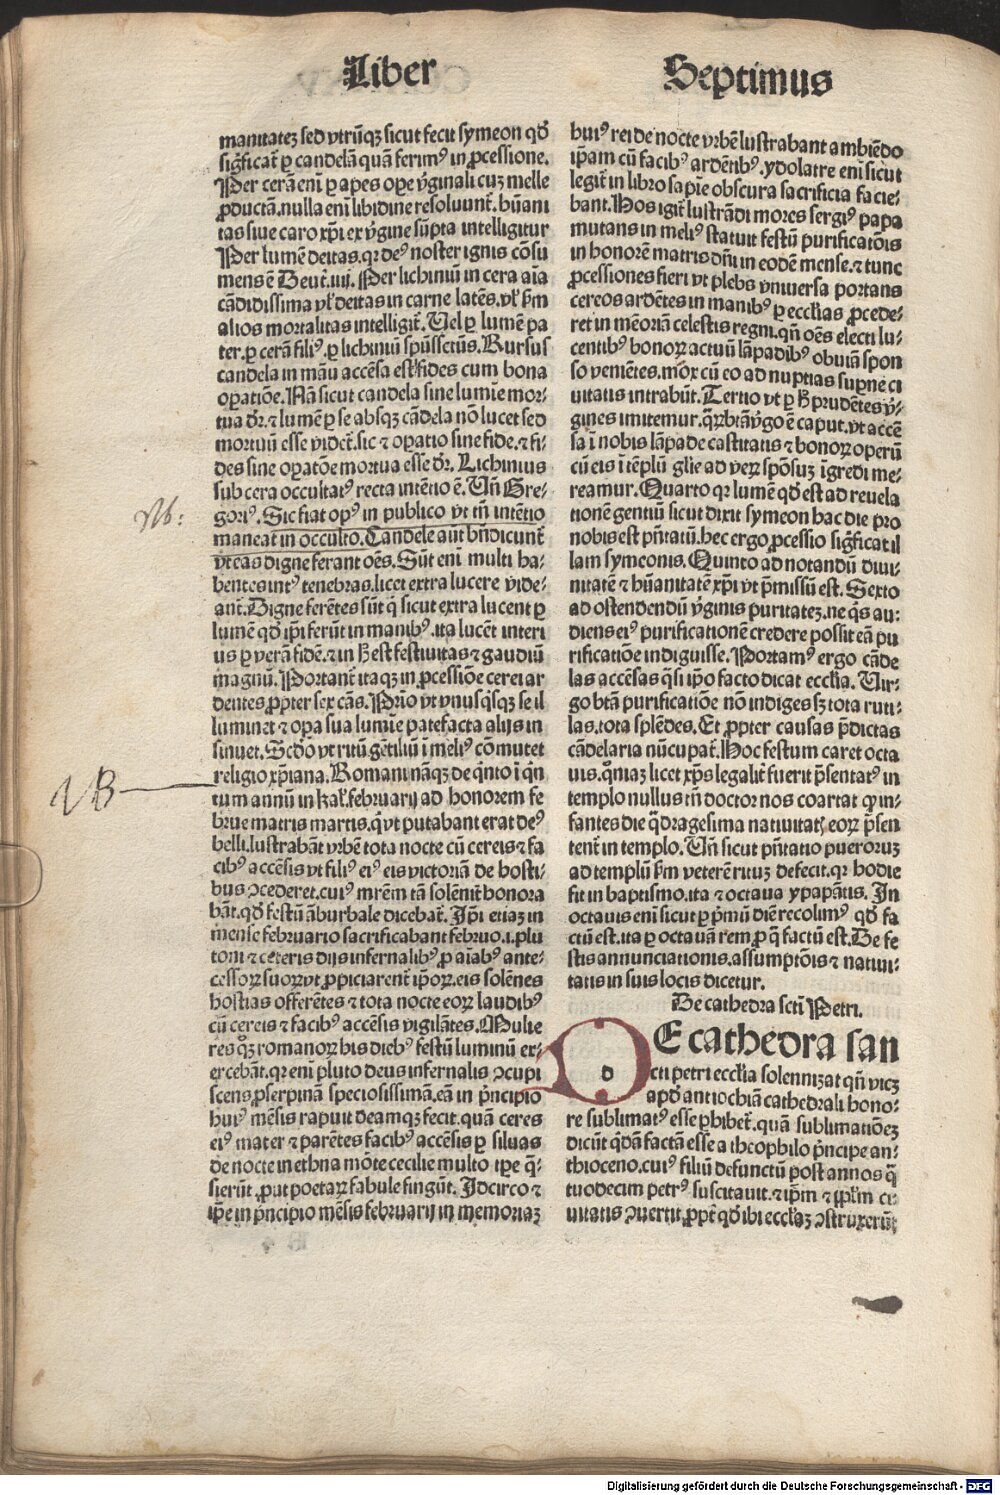 Liber Septimus
manitateꝫ sed vtrũqꝫ sicut fecit symeon qđ
sigͥficat̃ ꝑ candelã quã ferimꝰ in ꝓcessione.
Per cerã eni ꝑ apes oꝑe v̾ginali cuꝫ melle
ꝓductã. nulla eni libidine resoluunt̃. hũani
tas siue caro xp̃i ex v̾gine sũpta intelligitur
Per lumẽ deitas. qꝛ deꝰ noster ignis cõsu
mens ẽ Deut̃. iiij. Per lichiniũ in cera aĩa
cãdidissima vl̛ deitas in carne latẽs. vl̛ ẜm
alios mortalitas intelligit̃. Uel ꝑ lumẽ pa
ter. ꝑ cerã filiꝰ. ꝑ lichiniũ spũssctũs. Rursus
candela in manu accẽsa est fides cum bona
oꝑatiõe. Nã sicut candela sine lumĩe mor⸗
tua dr̃. ⁊ lumẽ ꝑ se absqꝫ cãdela nõ lucet sed
mortuũ esse videt̃. sic ⁊ oꝑatio sine fide. ⁊ fi⸗
des sine oꝑatõe mortua esse dr̃. Lichinius
sub cera occultatꝰ recta intẽtio ẽ. Un̄ Gre⸗
goriꝰ. Sic fiat opꝰ in publico vt tñ intẽtio
maneat in occulto. Candele aũt bñdicunt̃
vt eas digne ferant oẽs. Sũt eni multi ha⸗
bentes intꝰ tenebras. licet extra lucere vide⸗
ant̃. Digne ferẽtes sũt qͥ sicut extra lucent ꝑ
lumẽ qđ ip̃i ferũt in manibꝰ. ita lucẽt interi
us ꝑ verã fidẽ. ⁊ in h̾ est festiuitas ⁊ gaudiũ
magnũ. Portant̃ itaqꝫ in ꝓcessiõe cerei ar
dentes ꝓpter sex cãs. Prĩo vt vnusqͥsqꝫ se il
luminet ⁊ oꝑa sua lumĩe patefacta alijs in
sinuet. Scdõ vt ritũ gẽtiliũ ĩ meliꝰ cõmutet
religio xp̃iana. Romani nãqꝫ de qͥnto ĩ qͥn
tum annũ in kal̛. februarij ad honorem fe
brue matris martis. qͥ vt putabant erat deꝰ
belli. lustrabãt vrbẽ tota nocte cũ cereis ⁊ fa
cibꝰ accẽsis vt filiꝰ eiꝰ eis victoriã de hosti⸗
bus ↄcederet. cuiꝰ mr̃em tã solenit̃ honora
bãt. qđ festũ ãburbale dicebat̃. Ip̃i etiaꝫ in
mẽse februario sacrificabant februo .i. plu
toni ⁊ ceteris dijs infernalibꝰ ꝓ aĩabꝰ ante⸗
cessorꝝ suorꝝ vt ꝓpiciarent̃ ip̃orꝝ. eis solẽnes
hostias offerẽtes ⁊ tota nocte eorꝝ laudibꝰ
cũ cereis ⁊ facibꝰ accẽsis vigilãtes. Mulie
res qͦꝫ romanorꝝ his diebꝰ festũ luminũ ex⸗
ercebãt. qꝛ eni pluto deus infernalis ↄcupi
scens ꝓserpinã speciosissimã. eã in pͥncipio
huiꝰ mẽsis rapuit deamqꝫ fecit. quã ceres
eiꝰ mater ⁊ parẽtes facibꝰ accẽsis ꝑ siluas
de nocte in ethna mõte cecilie multo tꝑe qͥ⸗
sierũt ꝓut poetarꝝ fabule fingũt. Idcirco ⁊
ip̃e in pͥncipio mẽsis februarij in memoriaꝫ
huiꝰ rei de nocte vrbẽ lustrabant ambiẽdo
ip̃am cũ facibꝰ ardẽtibꝰ. ydolatre eni sicut
legit̃ in libro sapiẽ obscura sacrificia facie⸗
bant. Hos igit̃ lustrãdi mores sergiꝰ papa
mutans in meliꝰ statuit festũ purificatõis
in honorẽ matris dñi in eodẽ mense. ⁊ tunc
ꝓcessiones fieri vt plebs vniuersa portans
cereos ardẽtes in manibꝰ ꝑ ecclias ꝓcede⸗
ret in mẽoriã celestis regni. qñ oẽs electi lu⸗
centibꝰ bonorꝝ actuũ lãpadibꝰ obuiã spon
so veniẽtes. mox cũ eo ad nuptias sup̃ne ci
uitatis intrabũt. Tertio vt ꝑ h̾ prudẽtes v̾⸗
gines imitemur. qͣrꝝ btã v̾go ẽ caput. vt accẽ
sa ĩ nobis lãpade castitatis ⁊ bonorꝝ operũ
cũ eis ĩ tẽplũ gl̃ie ad verꝝ spõsuꝫ ĩgredi me⸗
reamur. Quarto qꝛ lumẽ qđ est ad reuela
tionẽ gentiũ sicut dixit symeon hac die pro
nobis est pñtatũ. hec ergo ꝓcessio sigͥficat il
lam symeonis. Quinto ad notandũ diui⸗
nitatẽ ⁊ hũanitatẽ xp̃i vt p̃missũ est. Sexto
ad ostendendũ v̾ginis puritateꝫ. ne qͥs au⸗
diens eiꝰ purificationẽ credere possit eã pu
rificatiõe indiguisse. Portamꝰ ergo cãde
las accẽsas qͣsi ip̃o facto dicat ecclia. Uir⸗
go btã purificatiõe nõ indiges sꝫ tota ruti⸗
las. tota splẽdes. Et ꝓpter causas p̃dictas
cãdelaria nũcupat̃. Hoc festum caret octa
uis. qͦniaꝫ licet xp̃s legalit̃ fuerit p̃sentatꝰ in
templo nullus tñ doctor nos coartat ꝙ in⸗
fantes die qͣdragesima natiuitat̛ eorꝝ p̃sen
tent̃ in templo. Un̄ sicut pñtatio pueroruꝫ
ad templũ ẜm veterẽ rituꝫ defecit. qꝛ hodie
fit in baptismo. ita ⁊ octaua ypapãtis. In
octauis eni sicut ꝑ pͥmũ diẽ recolimꝰ qđ fa
ctũ est. ita ꝑ octauã rem ꝓ qͣ factũ est. De fe
stis annunciationis. assumptõis ⁊ natiui⸗
tatis in suis locis dicetur.
De cathedra scti Petri.
DE cathedra san
cti petri ecclia solennizat qñ vicꝫ
apđ antiochiã cathedrali hono⸗
re sublimatꝰ esse ꝑhibet̃. quã sublimatiõeꝫ
dicũt qͥdã factã esse a theophilo pͥncipe an⸗
thioceno. cuiꝰ filiũ defunctũ post annos qͣ
tuordecim petrꝰ suscitauit. ⁊ ip̃m ⁊ pplm̃ ci
uitatis ↄuertit. ꝓpt̃ qđ ibi eccliaꝫ ↄstruxerũt
Nb:
NB
d
Digitalisierung gefördert durch die Deutsche Forschungsgemeinschaft - DFG